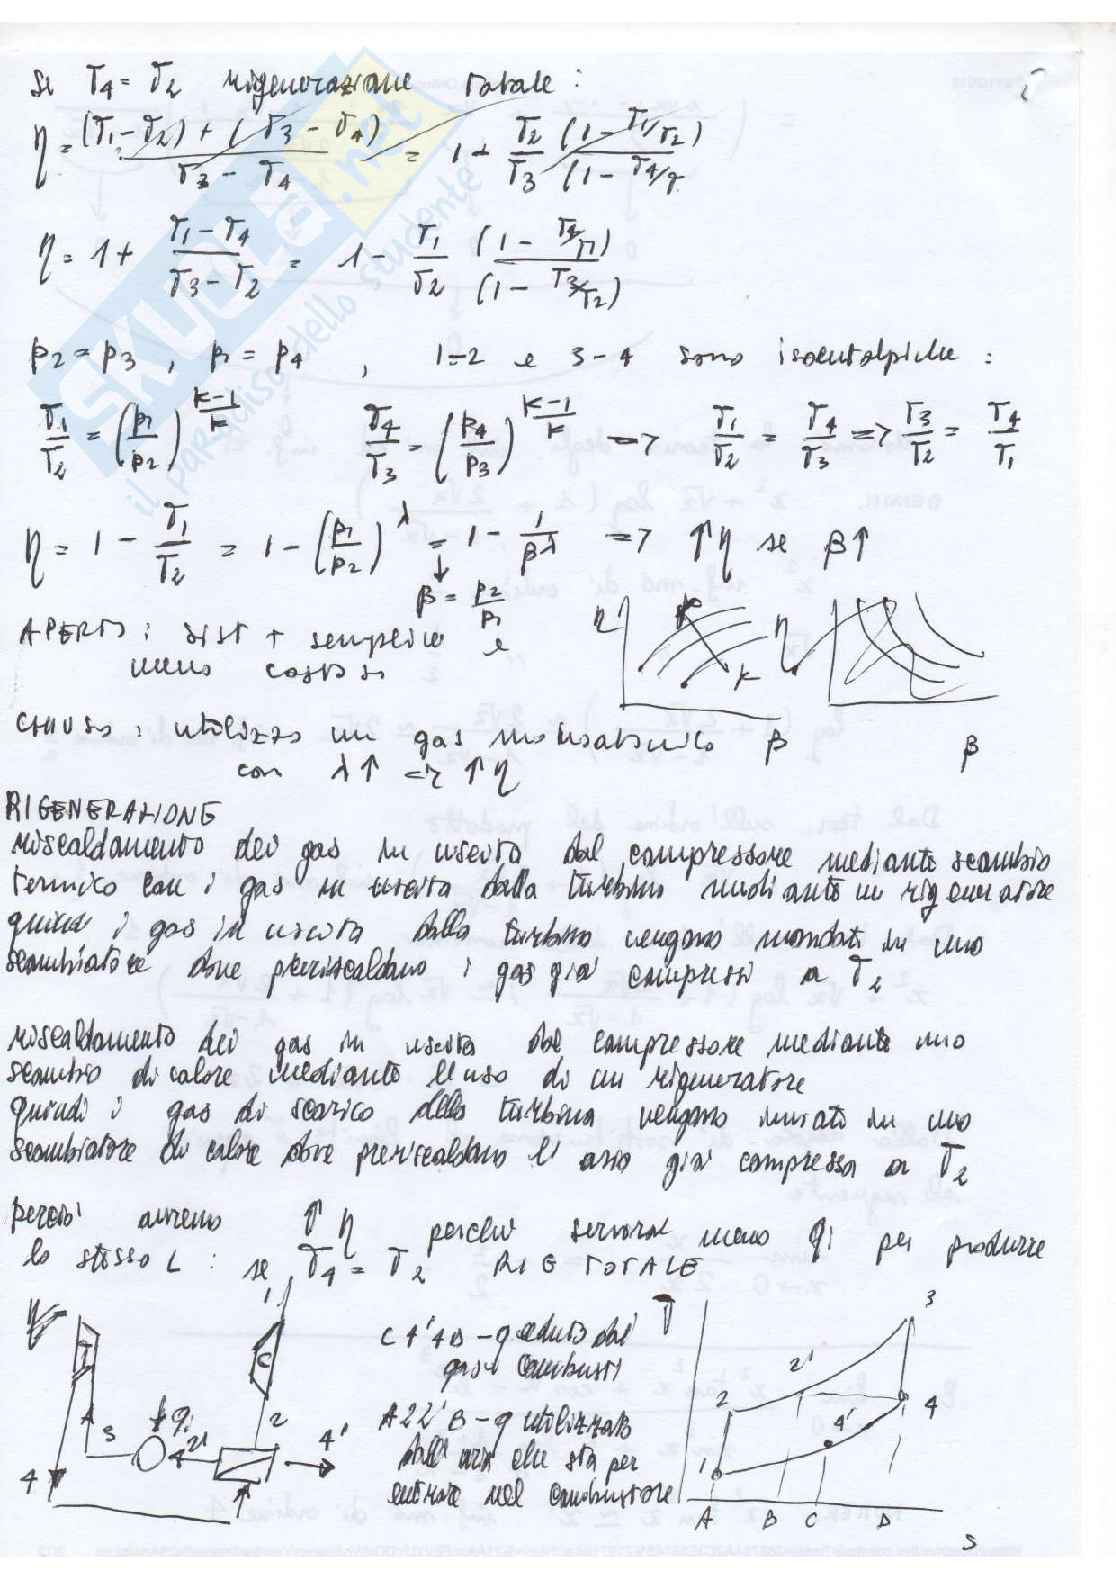 Se T4 = T2 rigenerazione totale :
η = (T1 - T2) + (T3 - T4) / T3 - T4 = 1 + T2/T3 (1 - T1/T2) / (1 - T4/
η = 1 + T1 - T4 / T3 - T2 = 1 - T1/T2 (1 - T4/T1) / (1 - T3/T2)
p2 = p3 , p1 = p4 , 1-2 e 3-4 sono isoentalpiche :
T1/T2 = (p1/p2)^(k-1/k) T4/T3 = (p4/p3)^(k-1/k) => T1/T2 = T4/T3 => T3/T2 = T4/T1
η = 1 - T1/T2 = 1 - (p1/p2)^λ = 1 - 1/β^λ => ↑η se β↑
↓
β = p2/p1
APERTO : sist + semplice e
meno costoso
η k η
CHIUSO : utilizzo un gas monoatomico β β
con λ↑ => ↑η
RIGENERAZIONE
riscaldamento dei gas in uscita dal compressore mediante scambio
termico con i gas in uscita dalla turbina mediante un rigeneratore
quindi i gas in uscita dalla turbina vengono mandati in uno
scambiatore dove preriscaldano i gas già compressi a T2
riscaldamento dei gas in uscita dal compressore mediante uno
scambio di calore mediante l'uso di un rigeneratore
quindi i gas di scarico della turbina vengono inviati in uno
scambiatore di calore dove preriscaldano l'aria già compressa a T2
perciò avremo ↑η perché servirà meno qi per produrre
lo stesso L : se T4 = T2 RIG TOTALE
1 T C 3 qi 2' 2 4' 4
C44'D - q ceduto dai
gas combusti
A22'B - q utilizzato
dall'aria che sta per
entrare nel combustore
T 3 2' 2 4' 4 1
A B C D
S
SKUOLA.net
il paradiso dello studente